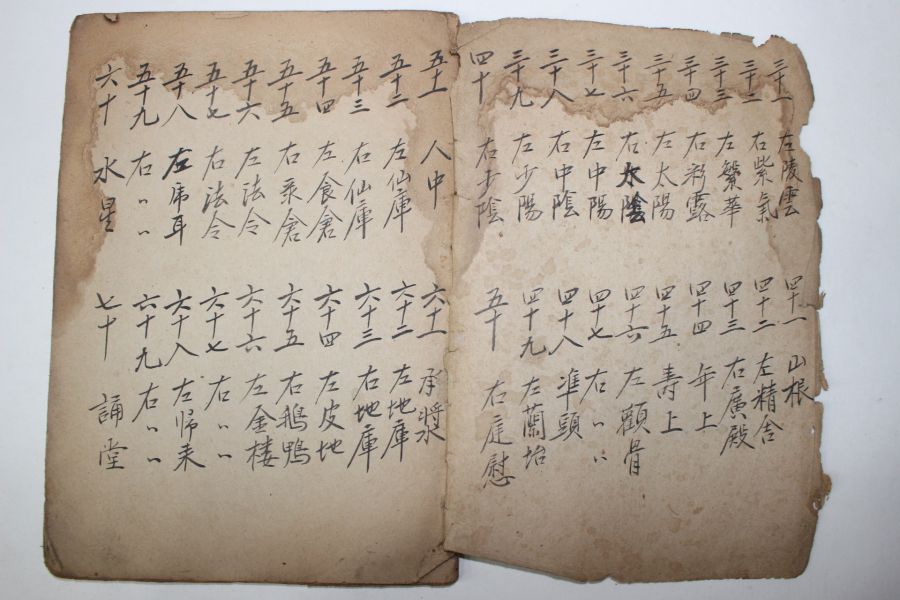 三十一 左陵雲
三十二 右紫氣
三十三 左繁華
三十四 右彩露
三十五 左太陽
三十六 右太陰
三十七 左中陽
三十八 右中陰
三十九 左少陽
四十 右少陰
四十一 山根
四十二 左精舍
四十三 右廣殿
四十四 年上
四十五 壽上
四十六 左顴骨
四十七 右〃〃
四十八 凖頭
四十九 左蘭坮
五十 右庭慰
五十一 人中
五十二 左仙庫
五十三 右仙庫
五十四 左食倉
五十五 右彔倉
五十六 左法令
五十七 右法令
五十八 左乕耳
五十九 右〃〃
六十 水星
六十一 承漿
六十二 左地庫
六十三 右地庫
六十四 左皮地
六十五 右鵝鴨
六十六 左金楼
六十七 右〃〃
六十八 左帰来
六十九 右〃〃
七十 誦堂